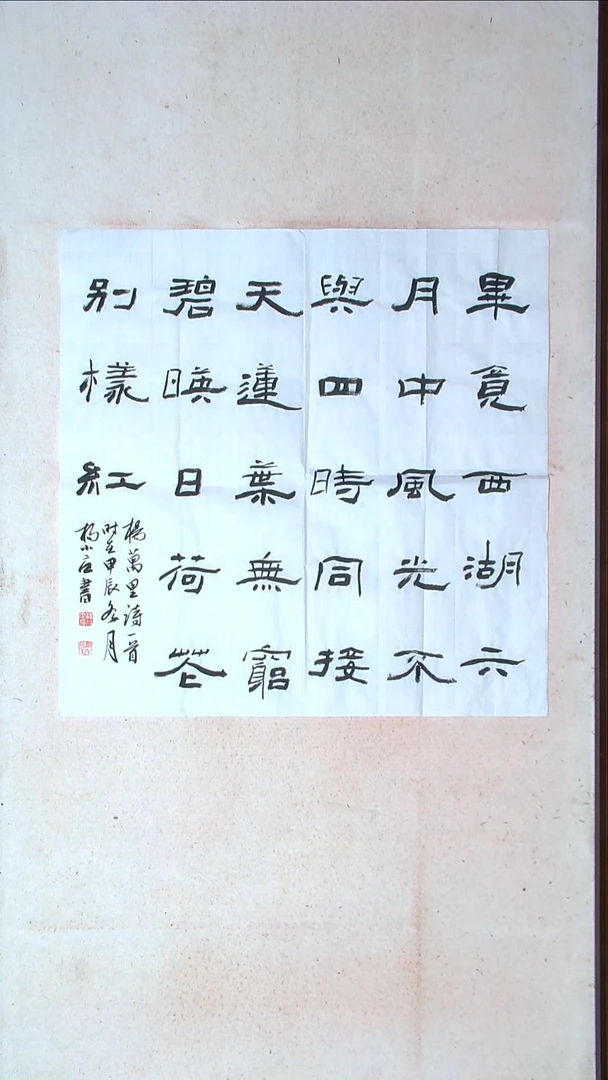 畢竟西湖六
月中風光不
與四時同接
天蓮葉無窮
碧暎日荷花
別樣紅
楊萬里詩一首
時在甲辰冬月
楊小 書